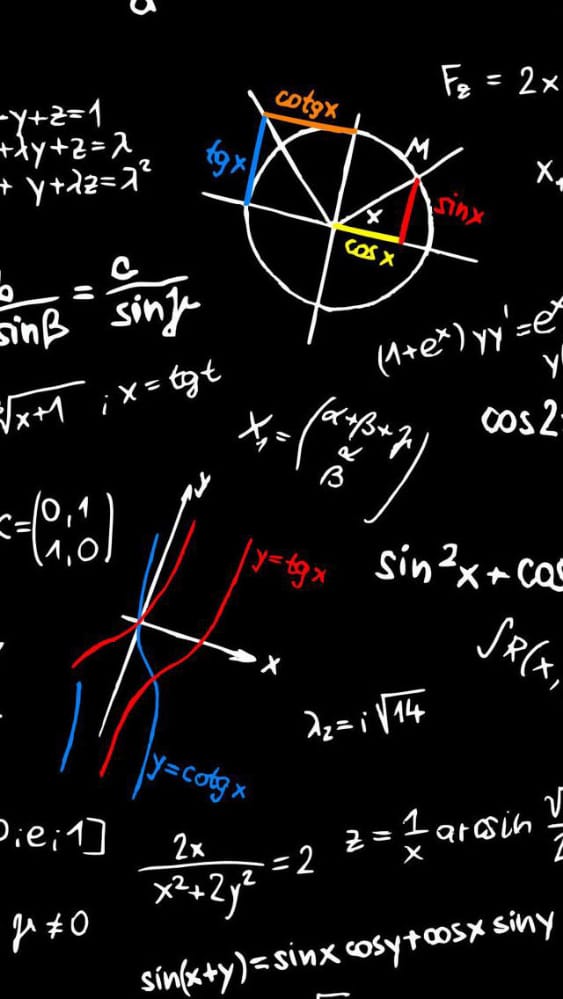 a
F₂ = 2x
-y+z=1
+λy+z=λ
+ y+λz=λ²
cotgx
tgx
M
x
sinx
cosx
b/sinβ = c/sinγ
(1+eˣ)yy'=eˣ
y
√x+1 ; x = tgt
X₁ = (α+β+γ
α
β)
cos2
C=(0,1
1,0)
y
y=tgx
x
y=cotgx
sin²x+cos
∫R(x,
λ₂=i√14
0;e;1]
2x/x²+2y² = 2
z = 1/x arcsin √/2
μ≠0
sin(x+y)=sinx cosy+cosx siny